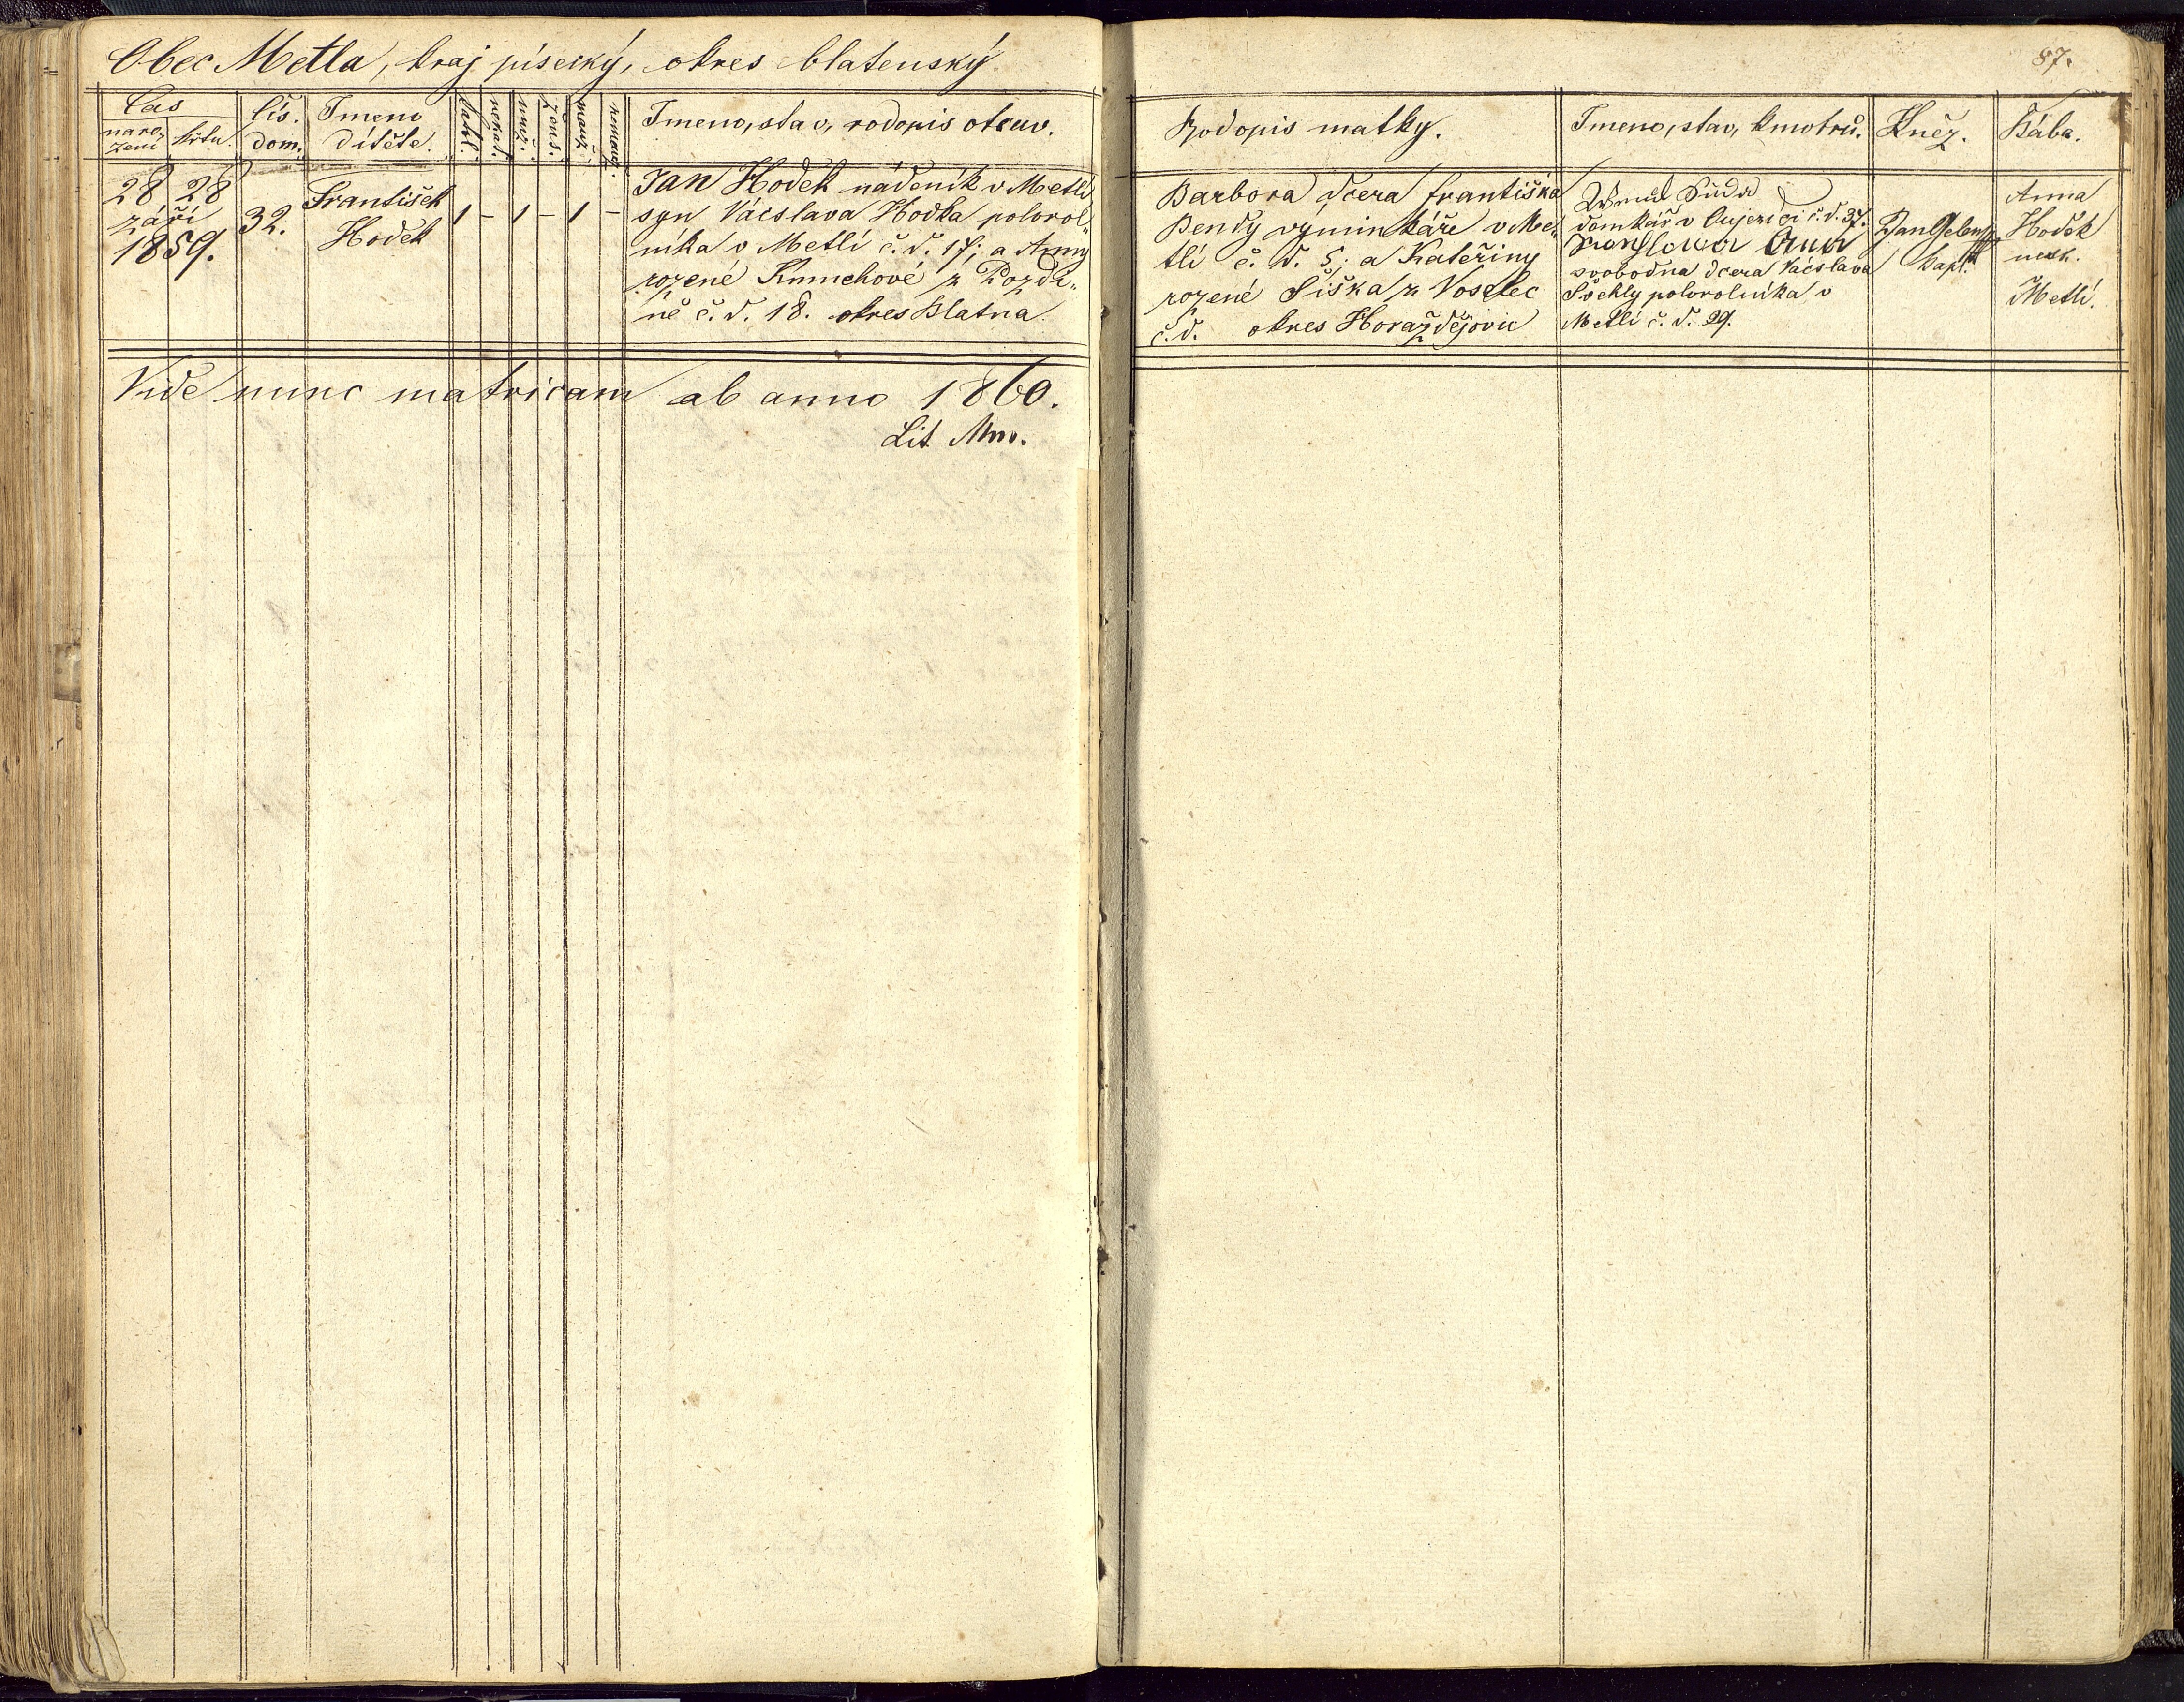 Obec Metla, kraj písecký, okres blatenský
87.
Čas
naro-
zení
křtu.
Čís.
dom.
Jmeno
dítěte.
katol.
nekat.
muž.
žens.
manž.
nemanž.
Jmeno, stav, rodopis otcuv.
Rodopis matky.
Jmeno, stav, kmotrů.
Kněz.
Bába.
28 28
září
1859.
32.
František
Hodek
1 – 1 – 1 –
Jan Hodek nádeník v Metli
syn Václslava Hodka polorol-
níka v Metlí č. d. 17; a Anny
rozené z Pozdi-
ně č. d. 18. okres Blatna.
Barbora dcera Františka
Bendy výminkáře v Me-
tlí č. d. 5; a Kateřiny
rozené Šiška z Voselec
č. d. okres Horažďejovic
domkář v č. d. 37.
Anna
svobodna dcera Václslava
polorolníka v
Metlí č. d. 29.
Jan
kapl.
Anna
Hodek
z
Metlí.
Vide nunc matricam ab anno 1860.
Lit. Mm.